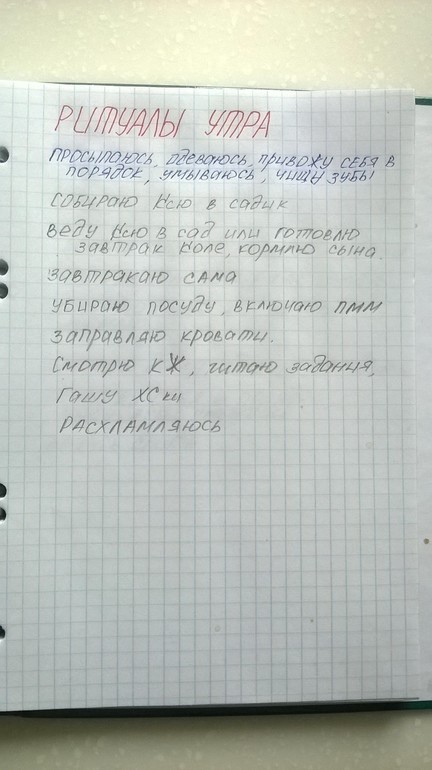 РИТУАЛЫ УТРА
ПРОСЫПАЮСЬ, ОДЕВАЮСЬ, ПРИВОЖУ СЕБЯ В
ПОРЯДОК, УМЫВАЮСЬ, ЧИЩУ ЗУБЫ
СОБИРАЮ КСЮ В САДИК
ВЕДУ КСЮ В САД ИЛИ ГОТОВЛЮ
ЗАВТРАК КОЛЕ, КОРМЛЮ СЫНА.
ЗАВТРАКАЮ САМА
УБИРАЮ ПОСУДУ, ВКЛЮЧАЮ ПММ
ЗАПРАВЛЯЮ КРОВАТИ.
СМОТРЮ КЖ, ЧИТАЮ ЗАДАНИЯ,
ГАШУ ХСки
РАСХЛАМЛЯЮСЬ